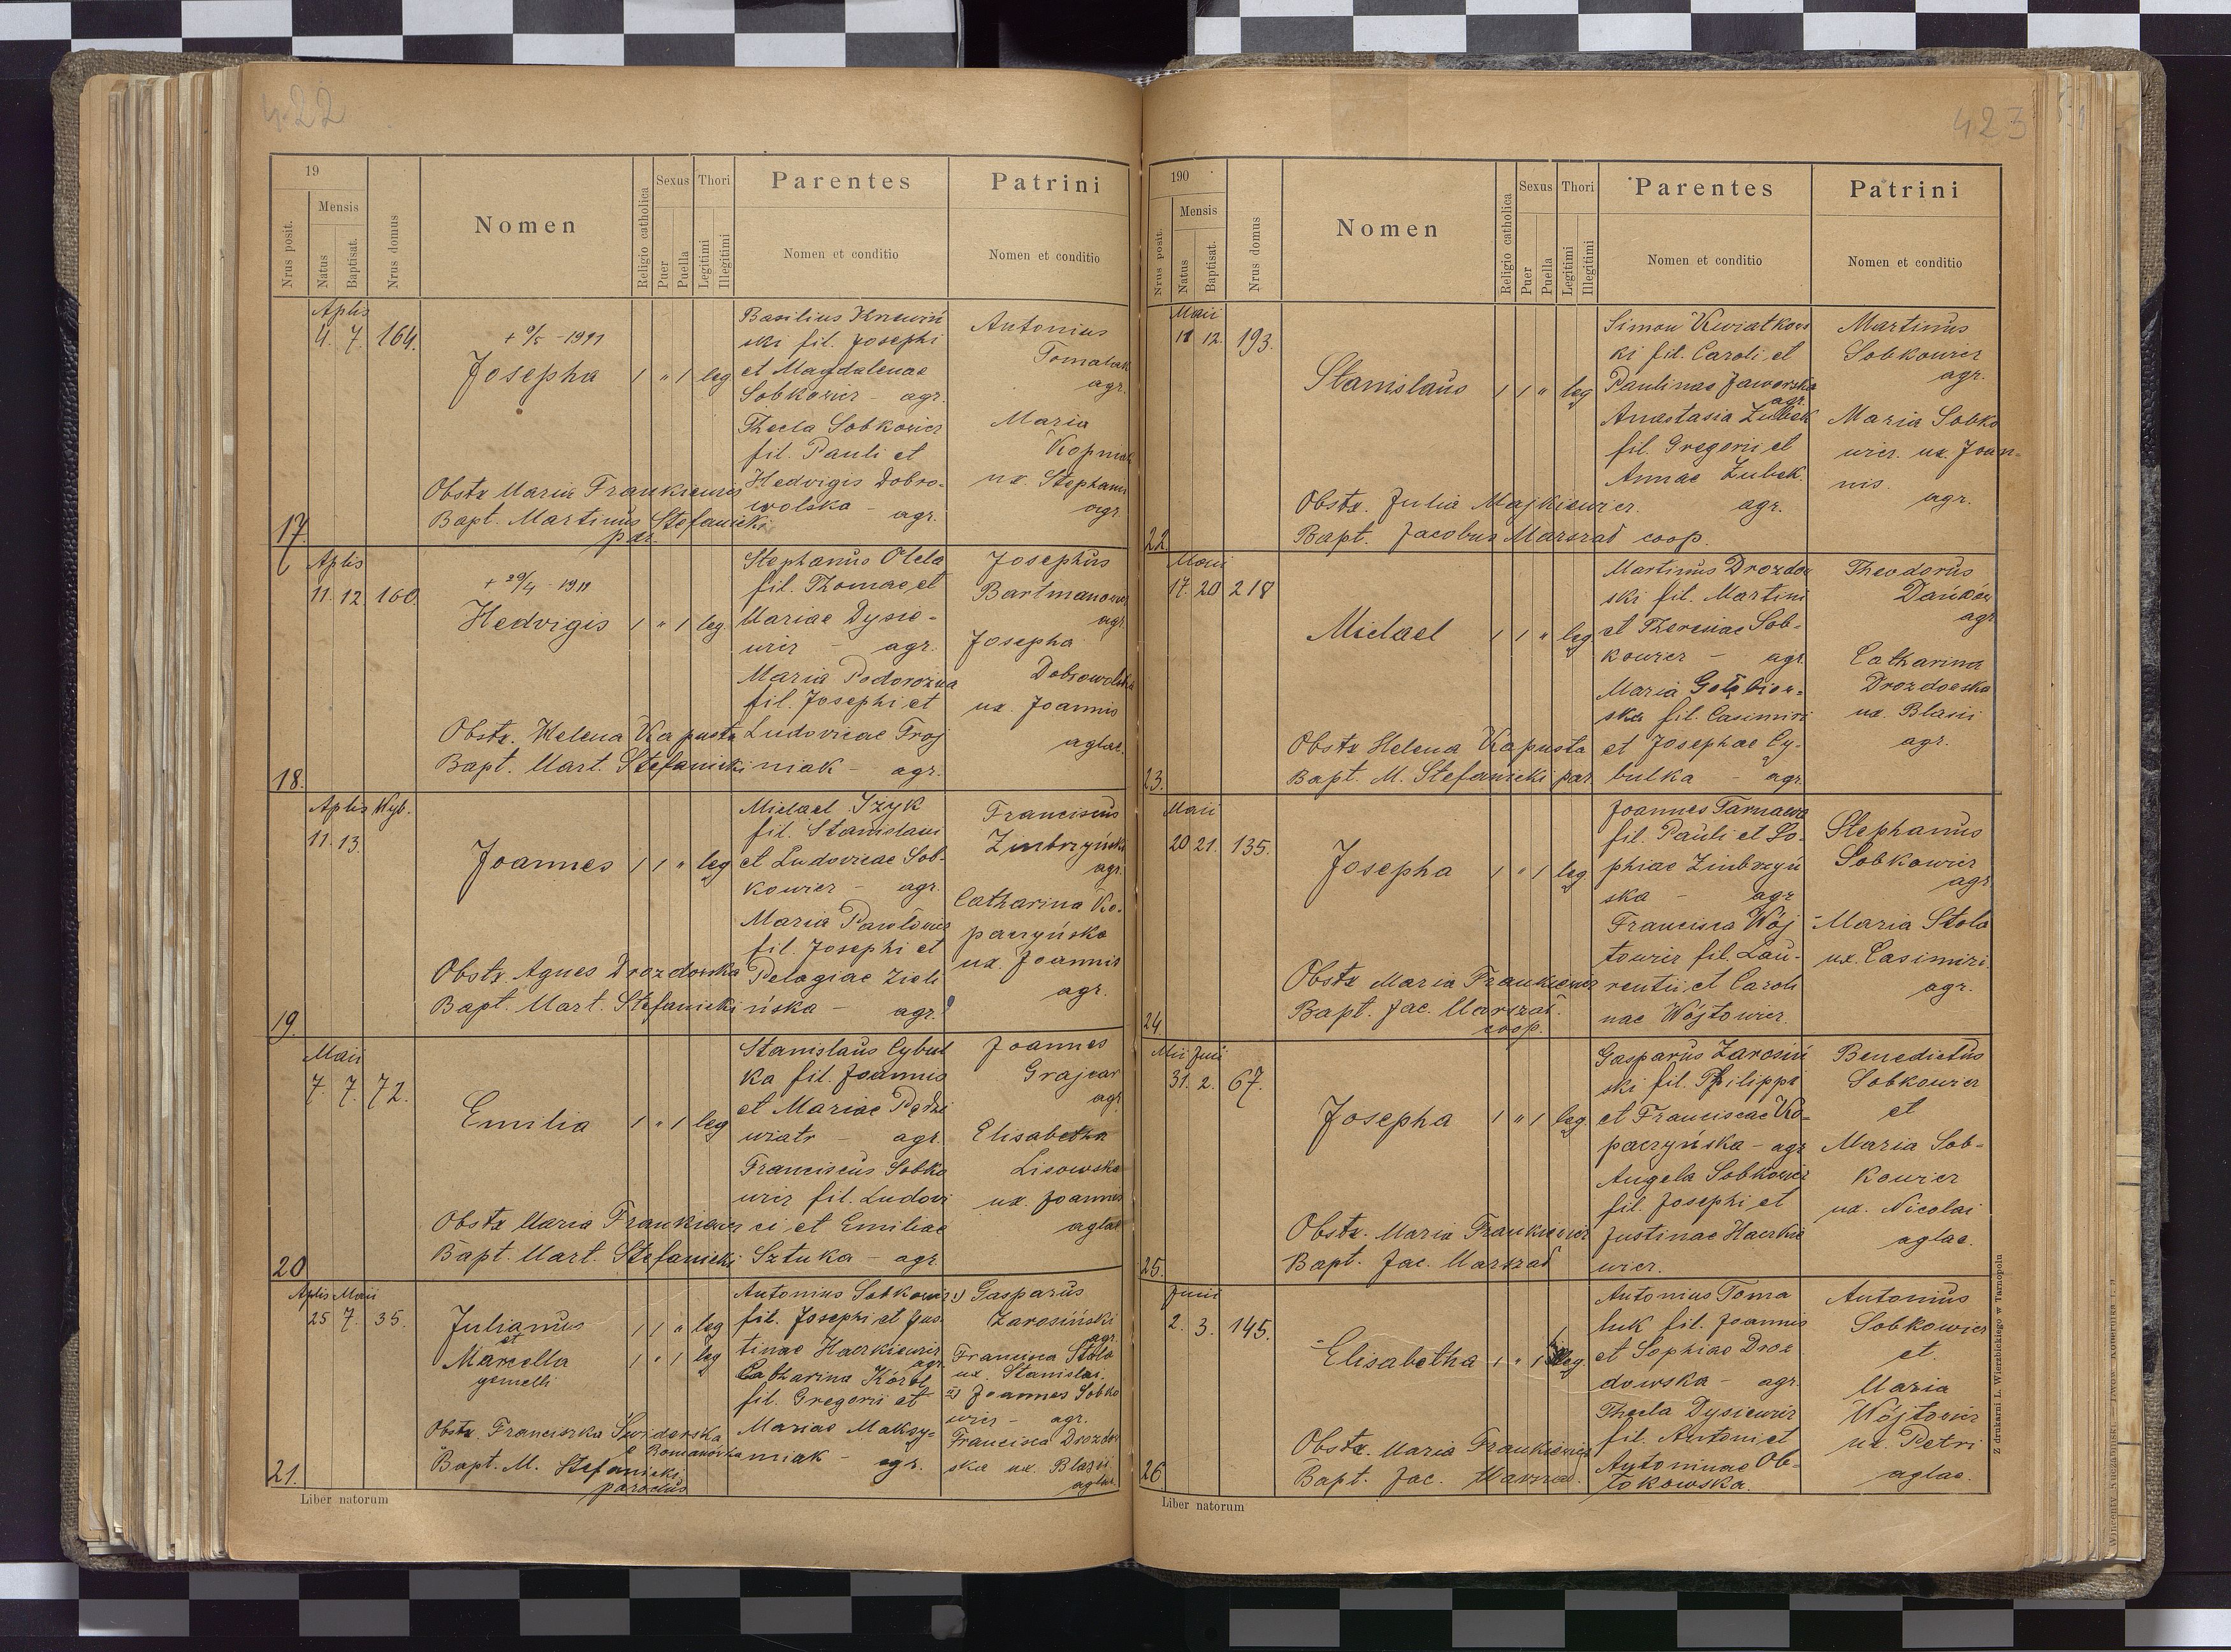 422
19
Nrus posit.
Mensis
Natus
Baptisat.
Nrus domus
Nomen
Religio catholica
Sexus
Puer
Puella
Thori
Legitimi
Illegitimi
Parentes
Nomen et conditio
Patrini
Nomen et conditio
17.
Aplis
4. 7. 164.
+ 9/5 - 1911
Josepha 1 " 1 leg
Obstx Maria Frankiewicz
Bapt. Martinus Stefanicki
par.
Basilius
ski fil. Josephi
et Magdalenae
Sobkowicz - agr.
Thecla Sobkowicz
fil. Pauli et
Hedvigis Dobro-
wolska - agr.
Antonius
Tomaluk
agr.
Maria
Kopniak
ux. Stephani
agr.
18.
Aplis
11. 12. 160.
+ 29/4 - 1911
Hedvigis 1 " 1 leg.
Obstx. Helena Kapusta
Bapt. Mart. Stefanicki
Stephanus
fil. Thomae et
Mariae Dysie-
wicz - agr.
Maria Podorozna
fil. Josephi et
Ludovicae Troj
niak - agr.
Josephus
Bartmanowicz
agr.
Josepha
Dobrowolska
ux. Joannis
aglae.
19.
Aplis Wyb.
11. 13.
Joannes 1 1 " leg
Obstx. Agnes Drozdowska
Bapt. Mart. Stefanicki
Michael Iżyk
fil. Stanislaui
et Ludovicae Sob-
kowicz - agr.
Maria Pawłowicz
fil. Josephi et
Pelagiae Zieli
ńska - agr.
Franciscus
Zimbrzyński
agr.
Catharina Ko-
paczyńska
ux. Joannis
agr.
20
Maii
7. 7. 72.
Emilia 1 " 1 leg
Obstx Maria Frankiewicz
Bapt. Mart. Stefanicki
Stanislaus Cybul
ka fil. Joannis
et Mariae Pędzi
wiatr - agr.
Franciscus Sobko
wicz fil. Ludovi
ci et Emiliae
Sztuka - agr.
Joannes
Grajcar
agr.
Elisabetha
Lisowska
ux. Joannis
aglae
21.
Aplis Maii
25 7. 35.
Julianus 1 1 " leg
et
Marcella 1 " 1 leg
gemelli
Obstx. Franciszka Swiderska
e Romanówka
Bapt. M. Stefanicki
parochus
Antonius Sobkowicz
fil. Josephi et Jus
tinae Haczkiewicz
agr.
Catharina Korol
fil. Gregorii et
Mariae Maksy-
miak - agr.
1) Gasparus
Zarosiński
agr.
Francisca Stola
ux. Stanislai.
2) Joannes Sobko
wicz - agr.
Francisca Drozdow
ska ux. Blasii
aglae.
Liber natorum
423
190
Nrus posit.
Mensis
Natus
Baptisat.
Nrus domus
Nomen
Religio catholica
Sexus
Puer
Puella
Thori
Legitimi
Illegitimi
Parentes
Nomen et conditio
Patrini
Nomen et conditio
22.
Maii
11 12. 193.
Stanislaus 1 1 " leg
Obstx. Julia Majkiewicz.
Bapt. Jacobus Marszał coop.
Simon Kwiatkows
ki fil. Caroli et
Paulinae Jaworska
agr.
Anastasia Zubek
fil. Gregorii et
Annae Zubek.
agr.
Martinus
Sobkowicz
agr.
Maria Sobko
wicz. ux. Joan-
nis.
agr.
23.
Maii
17. 20 218
Michael 1 1 " leg.
Obstx Helena Kapusta
Bapt. M. Stefanicki par.
Martinus Drozdow
ski fil. Martini
et Theresiae Sob-
kowicz - agr.
Maria Gołębiow-
ska fil. Casimiri
et Josephae Cy-
bulka - agr.
Theodorus
Dańków
agr.
Catharina
Drozdowska
ux. Blasii
agr.
24.
Maii
20 21. 135.
Josepha 1 " 1 leg
Obstx Maria Frankiewicz
Bapt. Jac. Marszał.
coop.
Joannes Tarnawa
fil. Pauli et So-
phiae Zimbrzyń
ska - agr
Francisca Wój
towicz fil. Lau-
rentii et Caroli
nae Wójtowicz.
Stephanus
Sobkowicz
agr.
Maria Stola
ux. Casimiri
agr.
25.
Mii Junii
31. 2. 67.
Josepha 1 " 1 leg
Obstx. Maria Frankiewicz
Bapt. Jac. Marszał
Gasparus Zarosiń
ski fil. Philippi
et Franciscae Ko-
paczyńska - agr
Angela Sobkowicz
fil. Josephi et
Justinae Haczkie
wicz.
Benedictus
Sobkowicz
et
Maria Sob-
kowicz
ux. Nicolai
aglae.
26
Junii
2. 3. 145.
Elisabetha 1 " 1 leg.
Obstx. Maria Frankiewicz
Bapt. Jac. Marszał.
Antonius Toma
luk fil. Joannis
et Sophiae Droz
dowska - agr.
Thecla Dysiewicz
fil. Antoni et
Antoninae Ob-
tokowska.
Antonius
Sobkowicz
et.
Maria
Wójtowicz
ux. Petri
aglae.
Liber natorum
Z drukarni L. Wierzbickiego w Tarnopolu